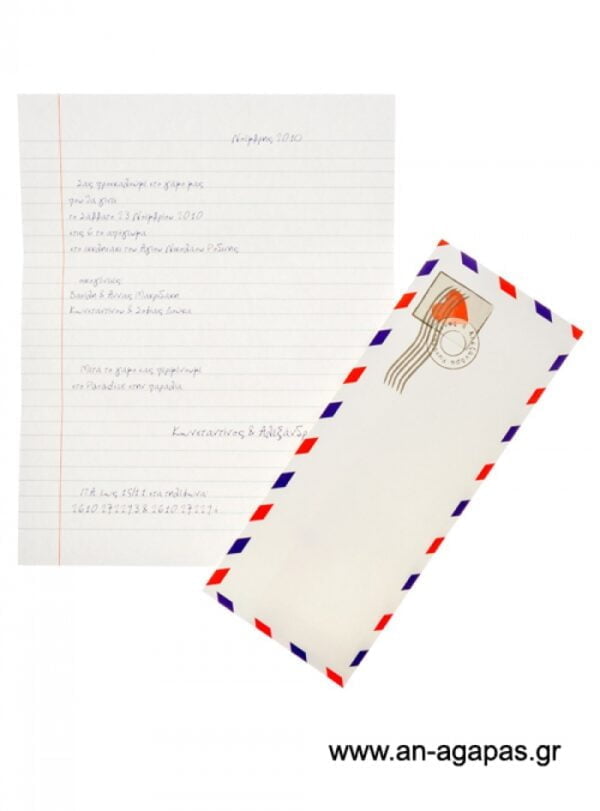 Νοέμβρης 2010
Σας προσκαλούμε στο γάμο μας
που θα γίνει
το Σάββατο 23 Νοεμβρίου 2010
στις 6 το απόγευμα
στο εκκλησάκι του Αγίου Νικολάου
οικογένειες:
Βασίλη & Άννας Μακρυδάκη
Κωνσταντίνου & Σοφίας
Μετά το γάμο σας περιμένουμε
στο Paradise στην παραλία
Κωνσταντίνος & Αλεξάνδρ
Π.Α. έως 15/11 στα τηλέφωνα:
www.an-agapas.gr